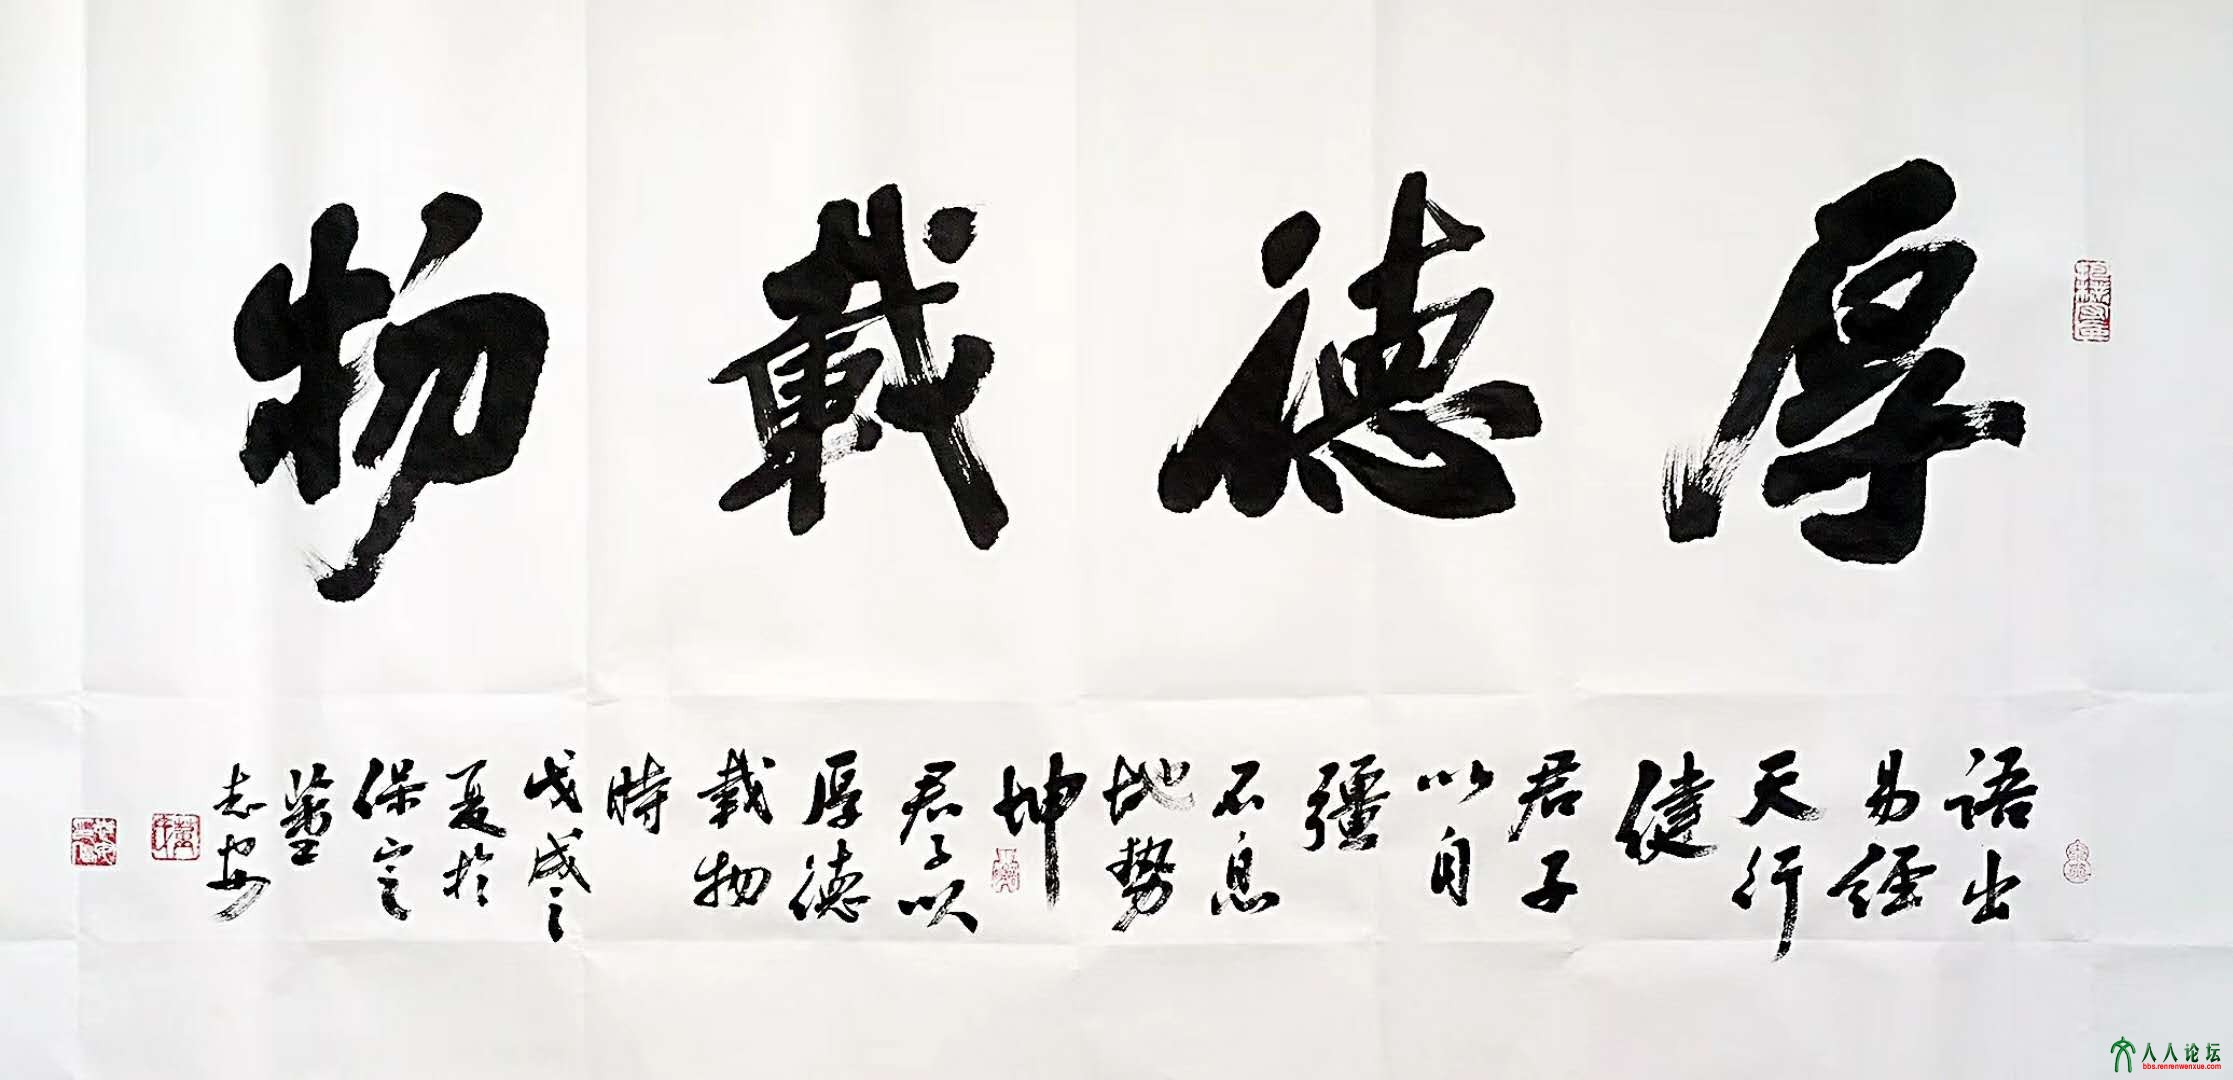 厚德載物
語出
易經
天行
健
君子
以自
彊
不息
地勢
坤
君子以
厚德
載物
時
戊戌之
夏於
保定
志安
人人论坛
bbs.renrenwenxue.com